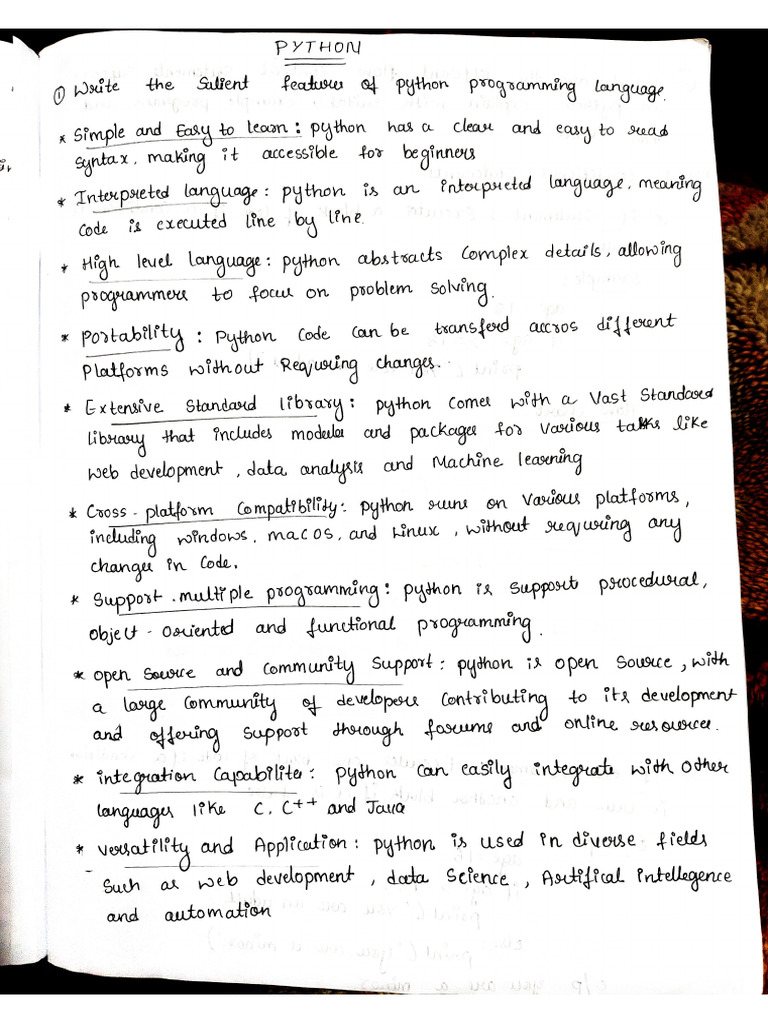 PYTHON
① Write the Salient features of python programming language.
* Simple and Easy to learn: python has a clear and easy to read
syntax, making it accessible for beginners
* Interpreted language: python is an interpreted language, meaning
code is executed line by line.
* High level language: python abstracts complex details, allowing
programmers to focus on problem solving.
* Portability: Python Code can be transferd accros different
Platforms without Requring changes.
* Extensive Standard library: python comes with a Vast Standard
library that includes modules and packages for various talks like
web development, data analysis and Machine learning
* Cross-platform Compatibility: python runs on various platforms,
including windows, macOS, and Linux, without requring any
changes in Code.
* Support multiple programming: python is support procedural,
object-oriented and functional programming.
* open Source and Community Support: python is open source, with
a large community of developers contributing to its development
and offering support through forums and online resources.
* integration Capabilites: python can easily integrate with other
languages like C, C++ and Java
* versatility and Application: python is used in diverse fields
such as web development, data science, Artifical intellegence
and automation